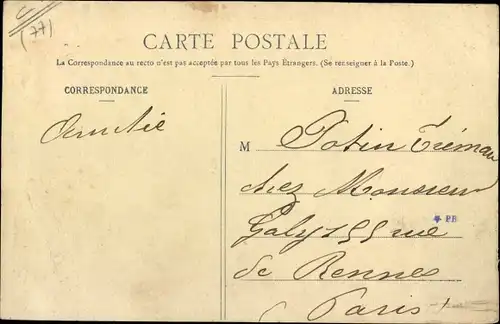 (77)
CARTE POSTALE
La Correspondance au recto n'est pas acceptée par tous les Pays Étrangers. (Se renseigner à la Poste.)
CORRESPONDANCE
ADRESSE
Amitié
M Potin
chez Monsieur
Galy 155 rue
PB
de Rennes
Paris